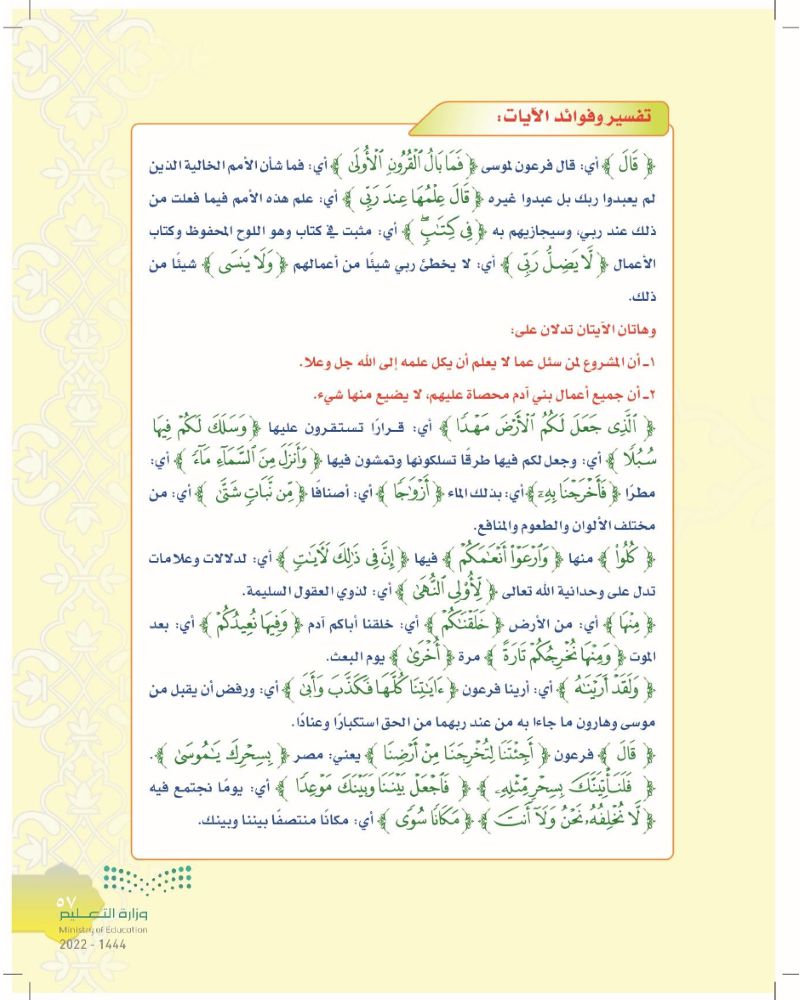 تفسير وفوائد الآيات:
﴿ قَالَ ﴾ أي: قال فرعون لموسى ﴿ فَمَا بَالُ ٱلْقُرُونِ ٱلْأُولَىٰ ﴾ أي: فما شأن الأمم الخالية الذين
لم يعبدوا ربك بل عبدوا غيره ﴿ قَالَ عِلْمُهَا عِندَ رَبِّي ﴾ أي: علم هذه الأمم فيما فعلت من
ذلك عند ربي، وسيجازيهم به ﴿ فِي كِتَٰبٍ ۖ ﴾ أي: مثبت في كتاب وهو اللوح المحفوظ وكتاب
الأعمال ﴿ لَّا يَضِلُّ رَبِّي ﴾ أي: لا يخطئ ربي شيئًا من أعمالهم ﴿ وَلَا يَنسَى ﴾ شيئًا من
ذلك.
وهاتان الآيتان تدلان على:
١ـ أن المشروع لمن سئل عما لا يعلم أن يكل علمه إلى الله جل وعلا.
٢ـ أن جميع أعمال بني آدم محصاة عليهم، لا يضيع منها شيء.
﴿ ٱلَّذِي جَعَلَ لَكُمُ ٱلْأَرْضَ مَهْدًا ﴾ أي: قـرارًا تستـقرون عليها ﴿ وَسَلَكَ لَكُمْ فِيهَا
سُبُلًا ﴾ أي: وجعل لكم فيها طرقًا تسلكونها وتمشون فيها ﴿ وَأَنزَلَ مِنَ ٱلسَّمَآءِ مَآءً ﴾ أي:
مطرًا ﴿ فَأَخْرَجْنَا بِهِۦٓ ﴾ أي: بذلك الماء ﴿ أَزْوَٰجًا ﴾ أي: أصنافًا ﴿ مِّن نَّبَاتٍ شَتَّىٰ ﴾ أي: من
مختلف الألوان والطعوم والمنافع.
﴿ كُلُوا۟ ﴾ منها ﴿ وَٱرْعَوْا۟ أَنْعَٰمَكُمْ ﴾ فيها ﴿ إِنَّ فِي ذَٰلِكَ لَآيَٰتٍ ﴾ أي: لدلالات وعلامات
تدل على وحدانية الله تعالى ﴿ لِّأُو۟لِي ٱلنُّهَىٰ ﴾ أي: لذوي العقول السليمة.
﴿ مِنْهَا ﴾ أي: من الأرض ﴿ خَلَقْنَٰكُمْ ﴾ أي: خلقنا أباكم آدم ﴿ وَفِيهَا نُعِيدُكُمْ ﴾ أي: بعد
الموت ﴿ وَمِنْهَا نُخْرِجُكُمْ تَارَةً ﴾ مرة ﴿ أُخْرَىٰ ﴾ يوم البعث.
﴿ وَلَقَدْ أَرَيْنَٰهُ ﴾ أي: أرينا فرعون ﴿ ءَايَٰتِنَا كُلَّهَا فَكَذَّبَ وَأَبَىٰ ﴾ أي: ورفض أن يقبل من
موسى وهارون ما جاءا به من عند ربهما من الحق استكبارًا وعنادًا.
﴿ قَالَ ﴾ فرعون ﴿ أَجِئْتَنَا لِتُخْرِجَنَا مِنْ أَرْضِنَا ﴾ يعني: مصر ﴿ بِسِحْرِكَ يَٰمُوسَىٰ ﴾.
﴿ فَلَنَأْتِيَنَّكَ بِسِحْرٍ مِّثْلِهِۦ ﴾ ﴿ فَٱجْعَلْ بَيْنَنَا وَبَيْنَكَ مَوْعِدًا ﴾ أي: يومًا نجتمع فيه
﴿ لَّا نُخْلِفُهُۥ نَحْنُ وَلَآ أَنتَ ﴾ ﴿ مَكَانًا سُوًى ﴾ أي: مكانًا منتصفًا بيننا وبينك.
٥٧
وزارة التعـليم
Ministry of Education
2022 - 1444